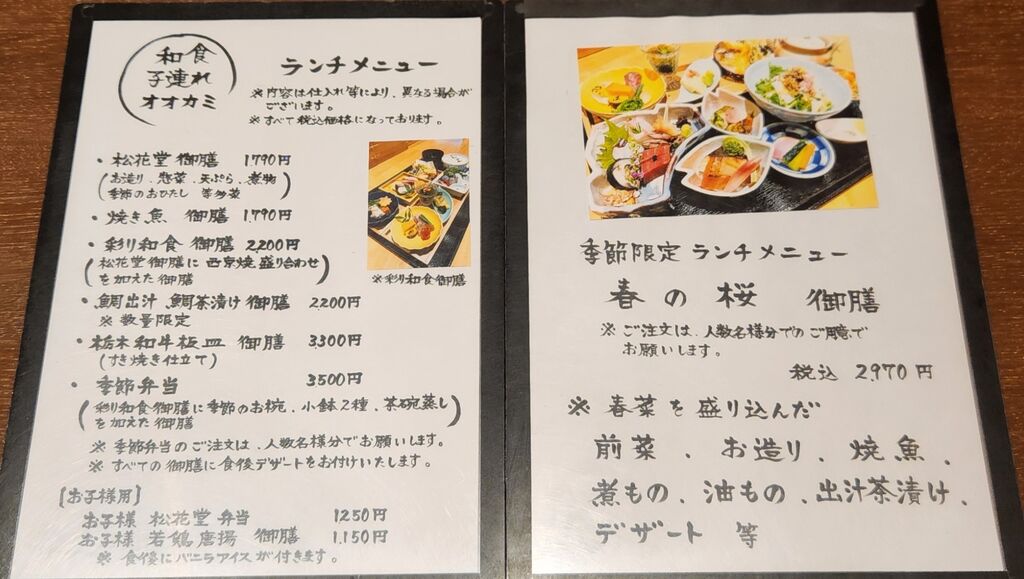 和食
子連れ
オオカミ
ランチメニュー
※内容は仕入れ等により、異なる場合が
ございます。
※すべて税込価格になっております。
・松花堂 御膳 1790円
(お造り、惣菜、天ぷら、煮物
季節のおひたし 等多菜)
・焼き魚 御膳 1,790円
・彩り和食 御膳 2200円
(松花堂御膳に 西京焼 盛り合わせ
を加えた御膳)
※彩り和食御膳
・鯛出汁 鯛茶漬け 御膳 2200円
※数量限定
・栃木和牛板皿 御膳 3300円
(すき焼き仕立て)
・季節弁当 3500円
(彩り和食御膳に季節のお椀、小鉢2種、茶碗蒸し
を加えた御膳)
※季節弁当のご注文は、人数名様分でお願いします。
※すべての御膳に食後デザートをお付けいたします。
[お子様用]
お子様 松花堂 弁当 1250円
お子様 若鶏唐揚 御膳 1,150円
※食後にバニラアイスが付きます。
季節限定 ランチメニュー
春の桜 御膳
※ご注文は、人数名様分でのご用意で
お願いします。
税込 2,970円
※春菜を盛り込んだ
前菜、お造り、焼魚、
煮もの、油もの、出汁茶漬け、
デザート 等